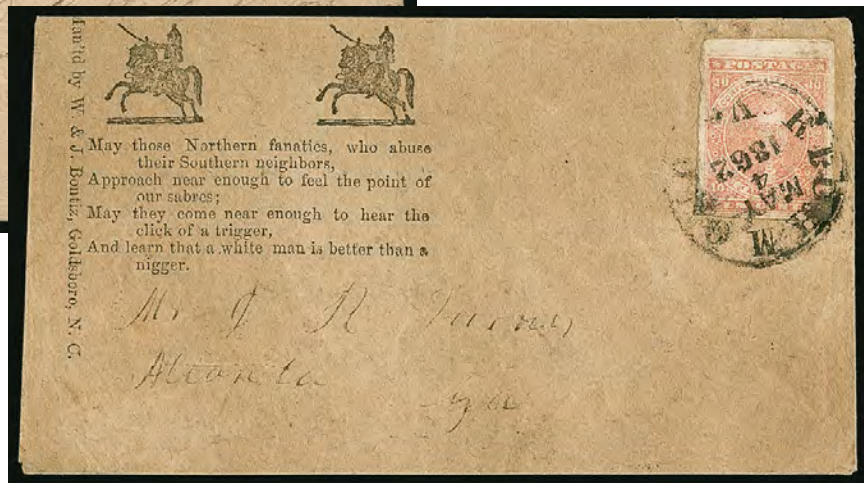 Man'td by W. & J. Bontiz, Goldsboro, N. C.
May those Northern fanatics, who abuse
their Southern neighbors,
Approach near enough to feel the point of
our sabres;
May they come near enough to hear the
click of a trigger,
And learn that a white man is better than a
nigger.
Mr J R
POSTAGE
MAY
4
1862